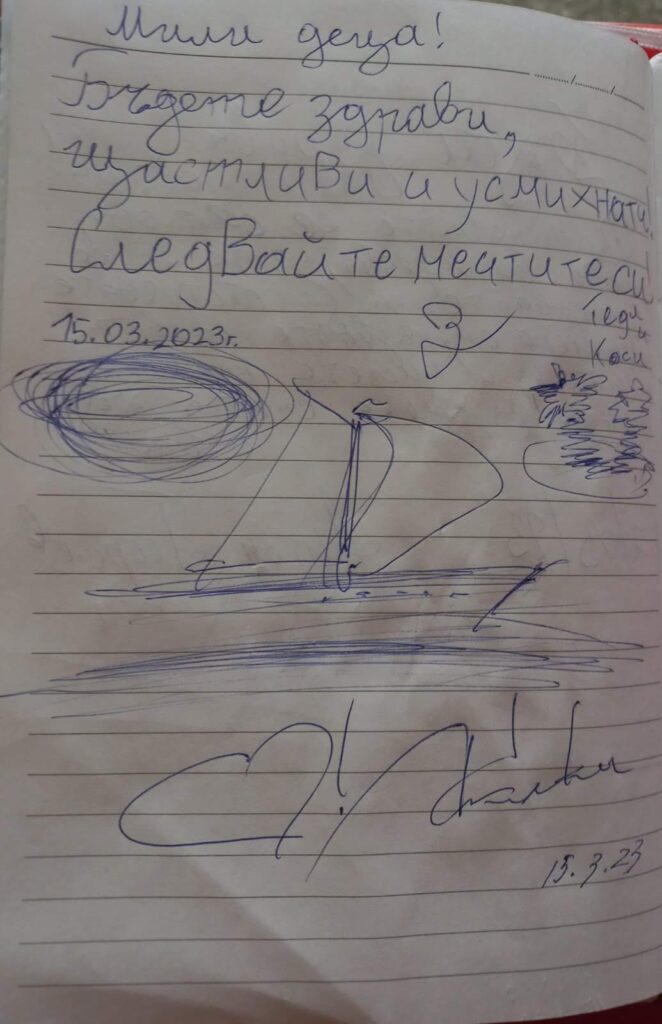 Мили деца!
Бъдете здрави,
щастливи и усмихнати!
Следвайте мечтите си!
15.03.2023г.
Теди
и
Коси
15.3.23